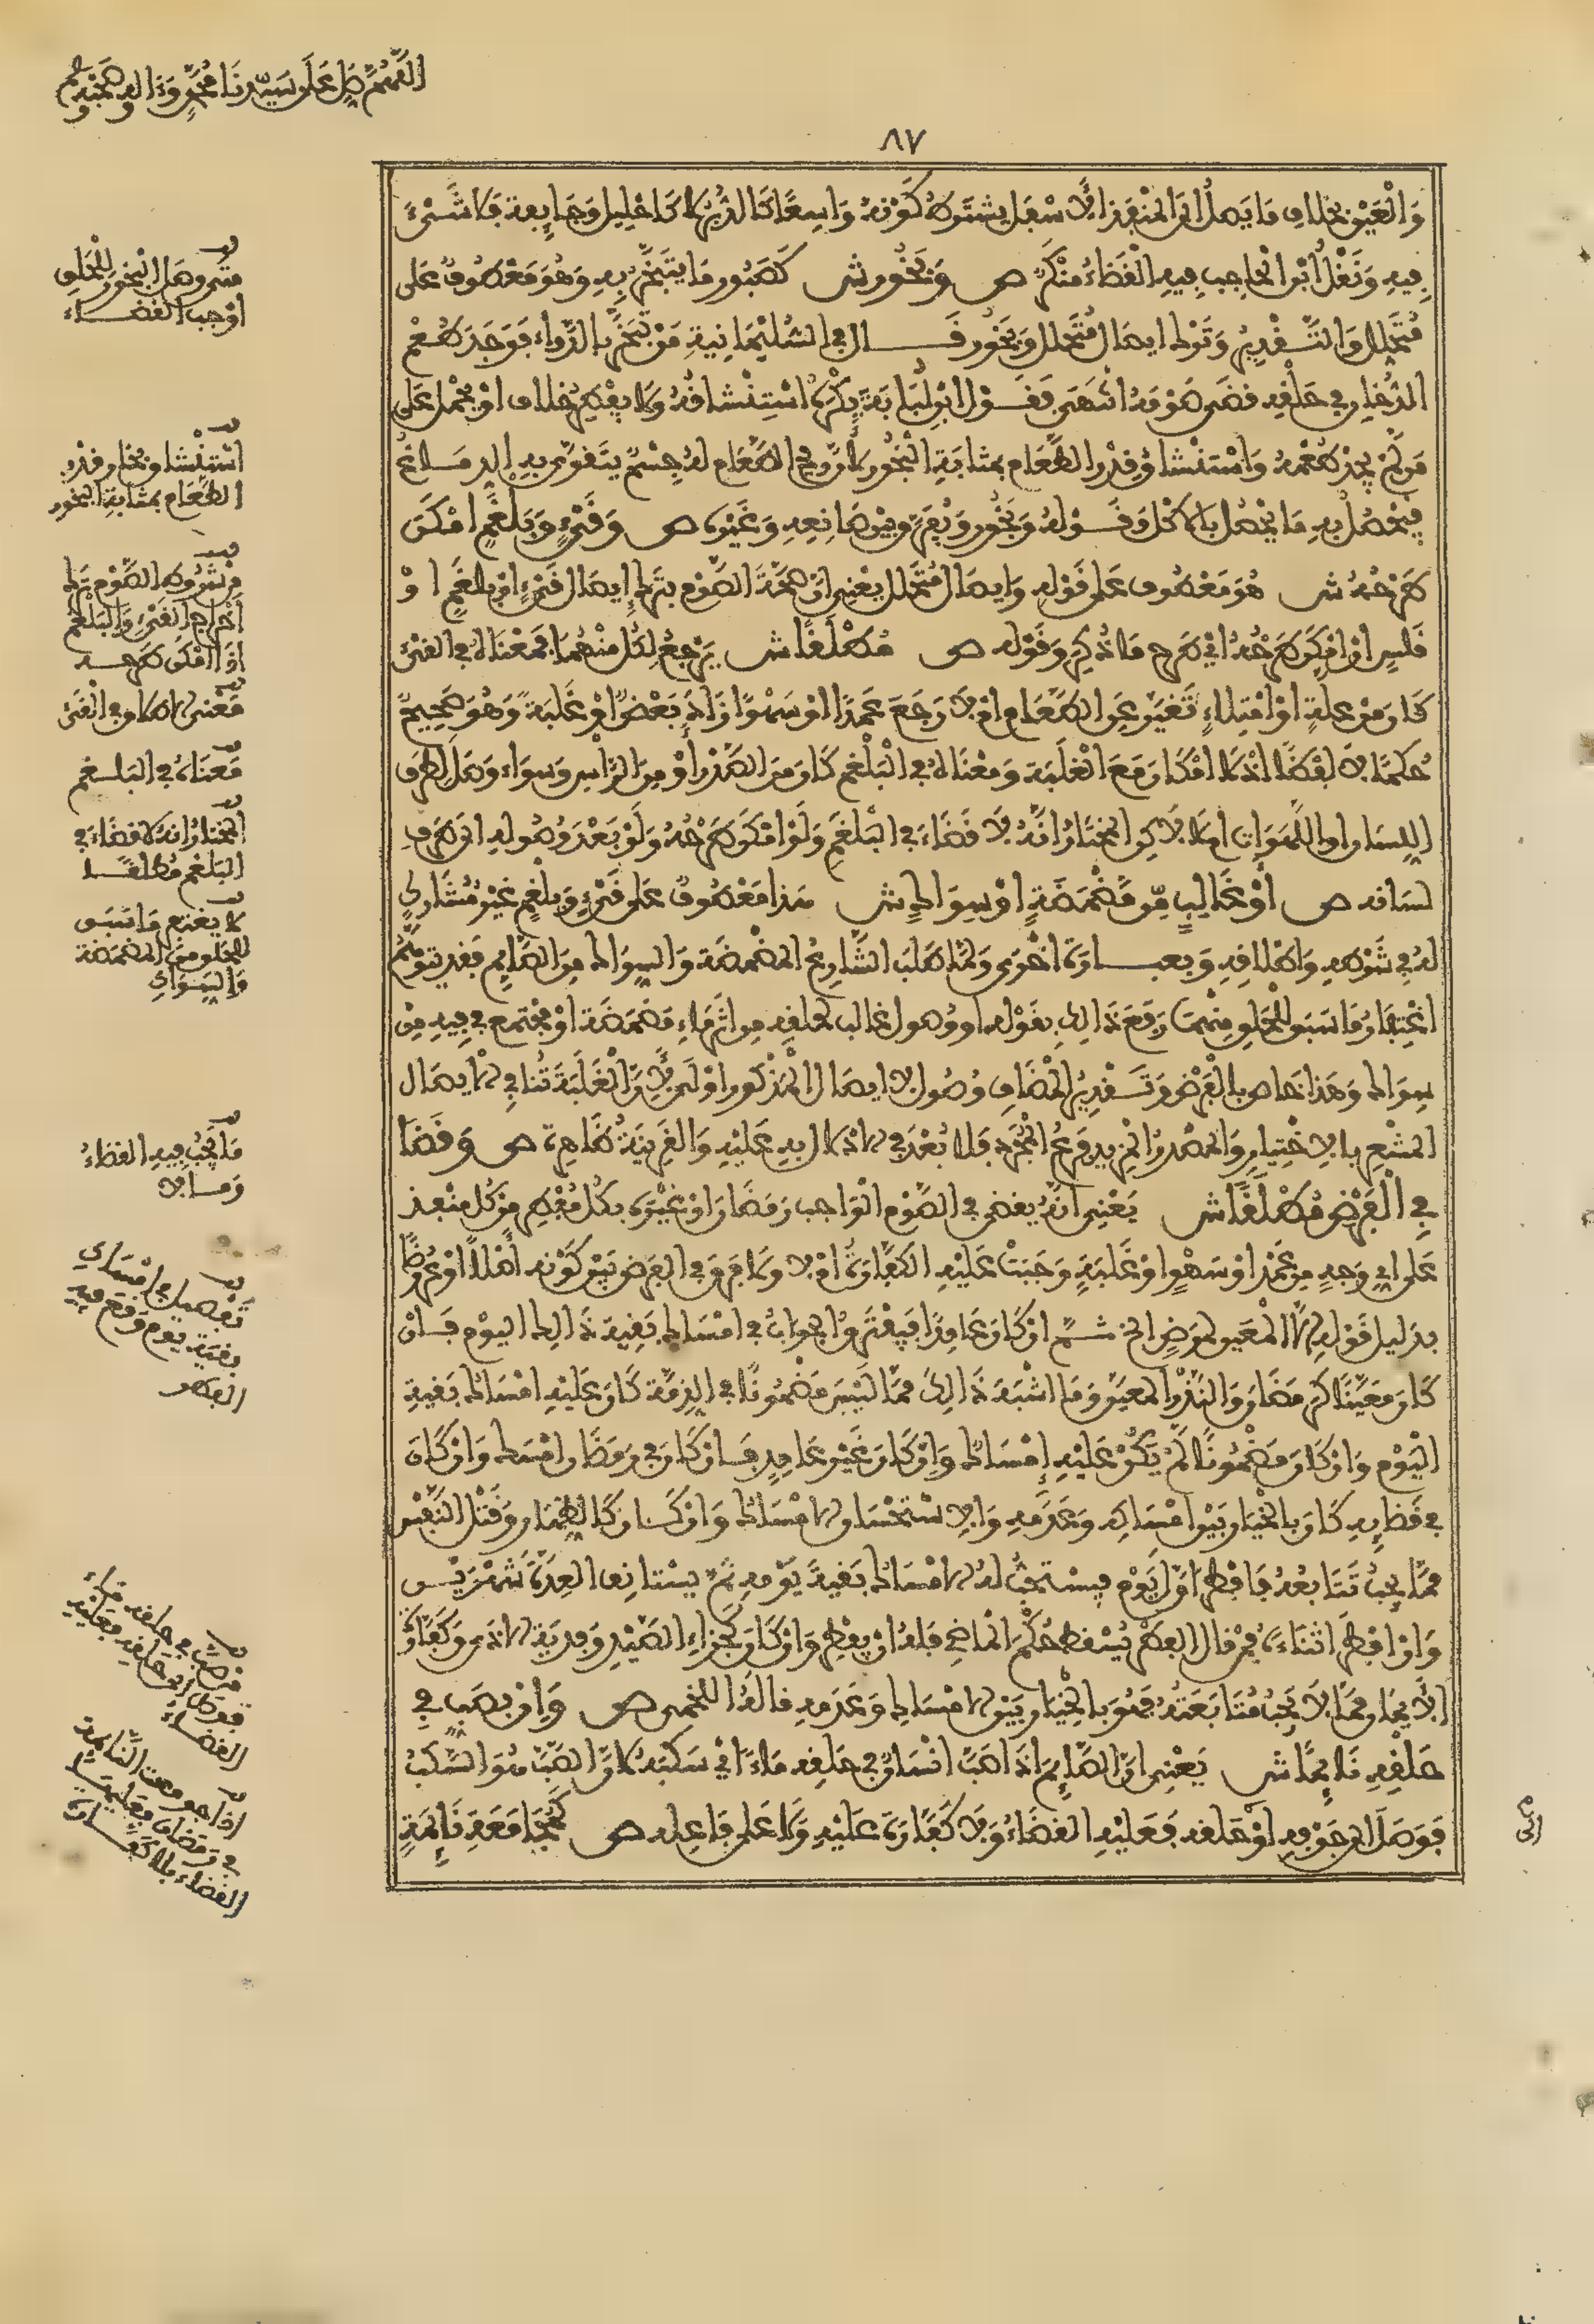 اللهم صل على سيدنا محمد وءاله وصحبه وسلم
٨٧
والعين بخلاف ما يصل الى المنفذ الأسفل يشترط كونه واسعا كالدبر لا كإحليل وجايفة فلا شيء
فيه ونقل ابن الحاجب فيه القضاء منكر ص وبخور ش كصبور ما يتبخر به وهو معطوف على
متحلل والتقدير وترك ايصال متحلل وبخور قال في السليمانية من تبخر بالدواء فوجد طعم
الدخان في حلقه قضى صومه انتهى فقول ابن لبابة يكره استنشاقه ولا يفطر خلاف او يحمل على
من لم يجد طعمه واستنشاق قدر الطعام بمثابة البخور لان ريح الطعام له جسم يتقوى به الدماغ
فيحصل به ما يحصل بالاكل وقوله وبخور وبفرق بين صانعه وغيره ص وقيء وبلغم امكن
طرحه ش هو معطوف على قوله وايصال متحلل يعني ان صحة الصوم بترك ايصال قيء او بلغم او
قلس ان امكن طرحه اي طرح ما ذكر وقوله ص مطلقا ش يرجع لكل منهما فمعناه في القيء
كان من علة او امتلاء تغير عن الطعام ام لا رجع عمدا او سهوا زاد بعض او غلبة وهو صحيح
حكما لا لفظا اذ لا امكان مع الغلبة ومعناه في البلغم كان من الصدر او من الراس وسواء وصل لطرف
اللسان او اللهوات ام لا لكن المختار انه لا قضاء في البلغم ولو امكن طرحه ولو بعد وصوله الى طرف
لسانه ص او غالب من مضمضة او سواك ش هذا معطوف على قيء وبلغم غير مشارك
له في شرطه واطلاقه وبعبارة اخرى ولما طلب الشارع المضمضة والسواك من الصايم فقد يتوهم
اغتفار ما سبق للحلق منهما رفع ذلك بقوله او وصول غالب لحلقه من اثر ماء مضمضة او مجتمع في فيه من
سواك وهذا خاص بالفرض وتقدير المضاف وصول لا ايصال المذكور اولى لان الغلبة تنافي الايصال
المشعر بالاختيار والمصدر المزيد فرع المجرد فلا بعد في الاذلال به عليه والقرينة ظاهرة ص وقضا
في الفرض مطلقا ش يعني انه يقضي في الصوم الواجب رمضان او غيره بكل مفطر من كل منفذ
على اي وجه من عمد او سهو او غلبة وجبت عليه الكفارة ام لا ولا فرق في الفرض بين كونه اصلا او عروضا
بدليل قوله الا المعين لمرض الخ ثم ان كان عامدا فيفترق الجواب في امساك بقية ذلك اليوم فان
كان معينا كرمضان والنذر المعين وما اشبه ذلك مما ليس مضمونا في الذمة كان عليه امساك بقية
اليوم وان كان مضمونا لم يكن عليه امساك وان كان غير عامد فان كان في رمضان امسك وان كان
في قضايه كان بالخيار بين امساكه وعدمه والاستحسان الامساك وان كان كالظهار وقتل النفس
مما يجب تتابعه فافطر اول يوم فيستحب له الامساك بقية يومه ثم يستانف العدة شهرين
وان افطر اثناءه فمن قال الفطر يسقط حكم الماضي فله ان يفطر وان كان كجزاء الصيد وفدية الاذى وكفارة
الأيمان مما لا يجب متابعته فهو بالخيار بين الامساك وعدمه قاله اللخمي ص وان بصب في
حلقه نايما ش يعني ان الصايم اذا صب انسان في حلقه ماء اي سكبه لان الصب هو السكب
فوصل الى جوفه او حلقه فعليه القضاء ولا كفارة عليه ولا على فاعله ص كمجامعة نائمة
متى وصل البخور للحلق
اوجب القضاء
استنشاق بخار قدر
الطعام بمثابة البخور
من شروط الصوم ترك
اخراج القيء والبلغم
اذا امكن طرحه
معنى الاطلاق في القيء
معناه في البلغم
المختار انه لا قضاء في
البلغم مطلقا
لا يغتفر ما سبق
للحلق من المضمضة
والسواك
ما يجب فيه القضاء
وما لا
تفصيل في امساك
بقية يوم وقع فيه
الفطر
من صب في حلقه ماء
فوصل الى حلقه فعليه
القضاء
اذا جومعت النائمة
في رمضان فعليها
القضاء بلا كفارة